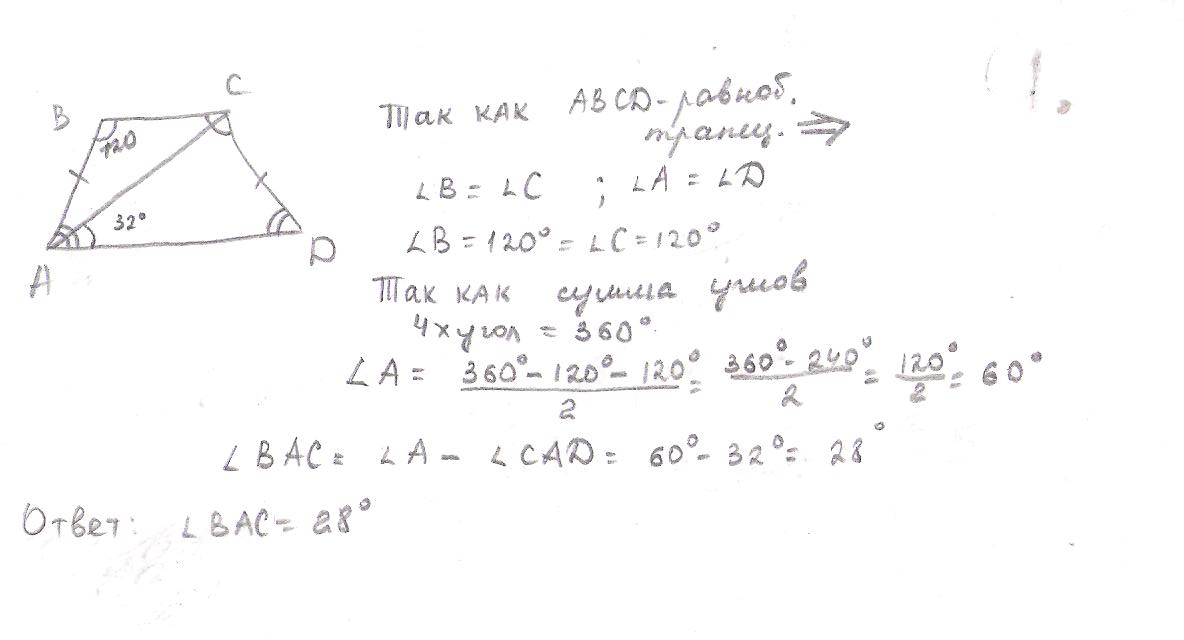 1.
B
C
120
32°
A
D
Так как ABCD - равноб.
трапец. ⇒
∠B = ∠C ; ∠A = ∠D
∠B = 120° = ∠C = 120°
Так как сумма углов
4хугол = 360°
∠A = (360° - 120° - 120°)/2 = (360° - 240°)/2 = 120°/2 = 60°
∠BAC = ∠A - ∠CAD = 60° - 32° = 28°
Ответ: ∠BAC = 28°